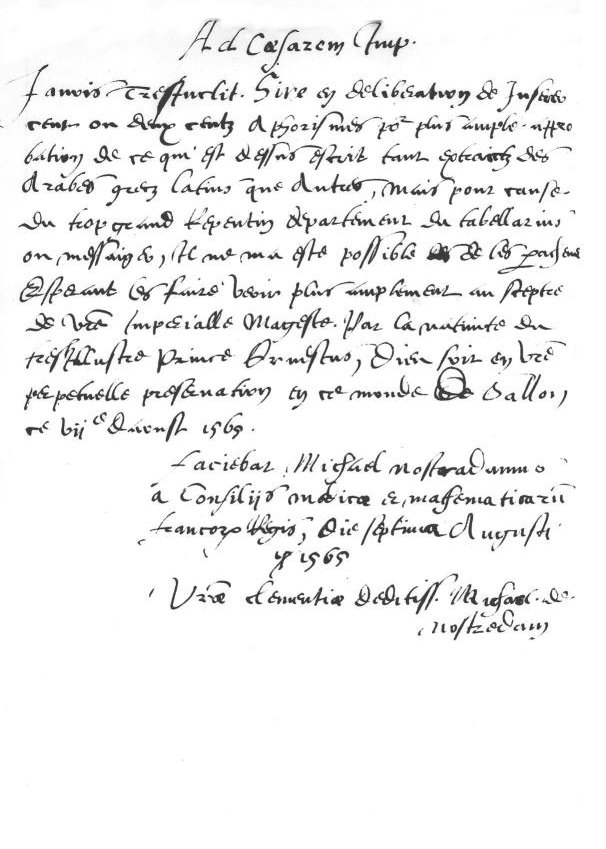 Ad Cæsarem Imp.
J'avois Tresinclit. Sire en deliberation de Inserer
cent ou deux centz Aphorismes po^r plus ample appro
bation de ce qui est dessus escrit tant extraictz des
Arabes grecz latins que Autres, mais pour cause
du trop grand Repentin departement du tabellarius
ou messaiger, Il ne ma este possible de les
Esperant les faire venir plus amplement au sceptre
de vr̃e Imperialle Mageste. Par la nativite du
tresillustre Prince Ernestus, Dieu soit en vr̃e
perpetuelle preservation en ce monde De Sallon,
ce vij^e d'aoust 1565.
Faciebat Michael nostradamus
a Consilijs medicæ et mathematicarũ
francorꝝ Regis, Die septima Augusti
1565
Vr̃æ clementiæ deditiss. Michael de
nostredam